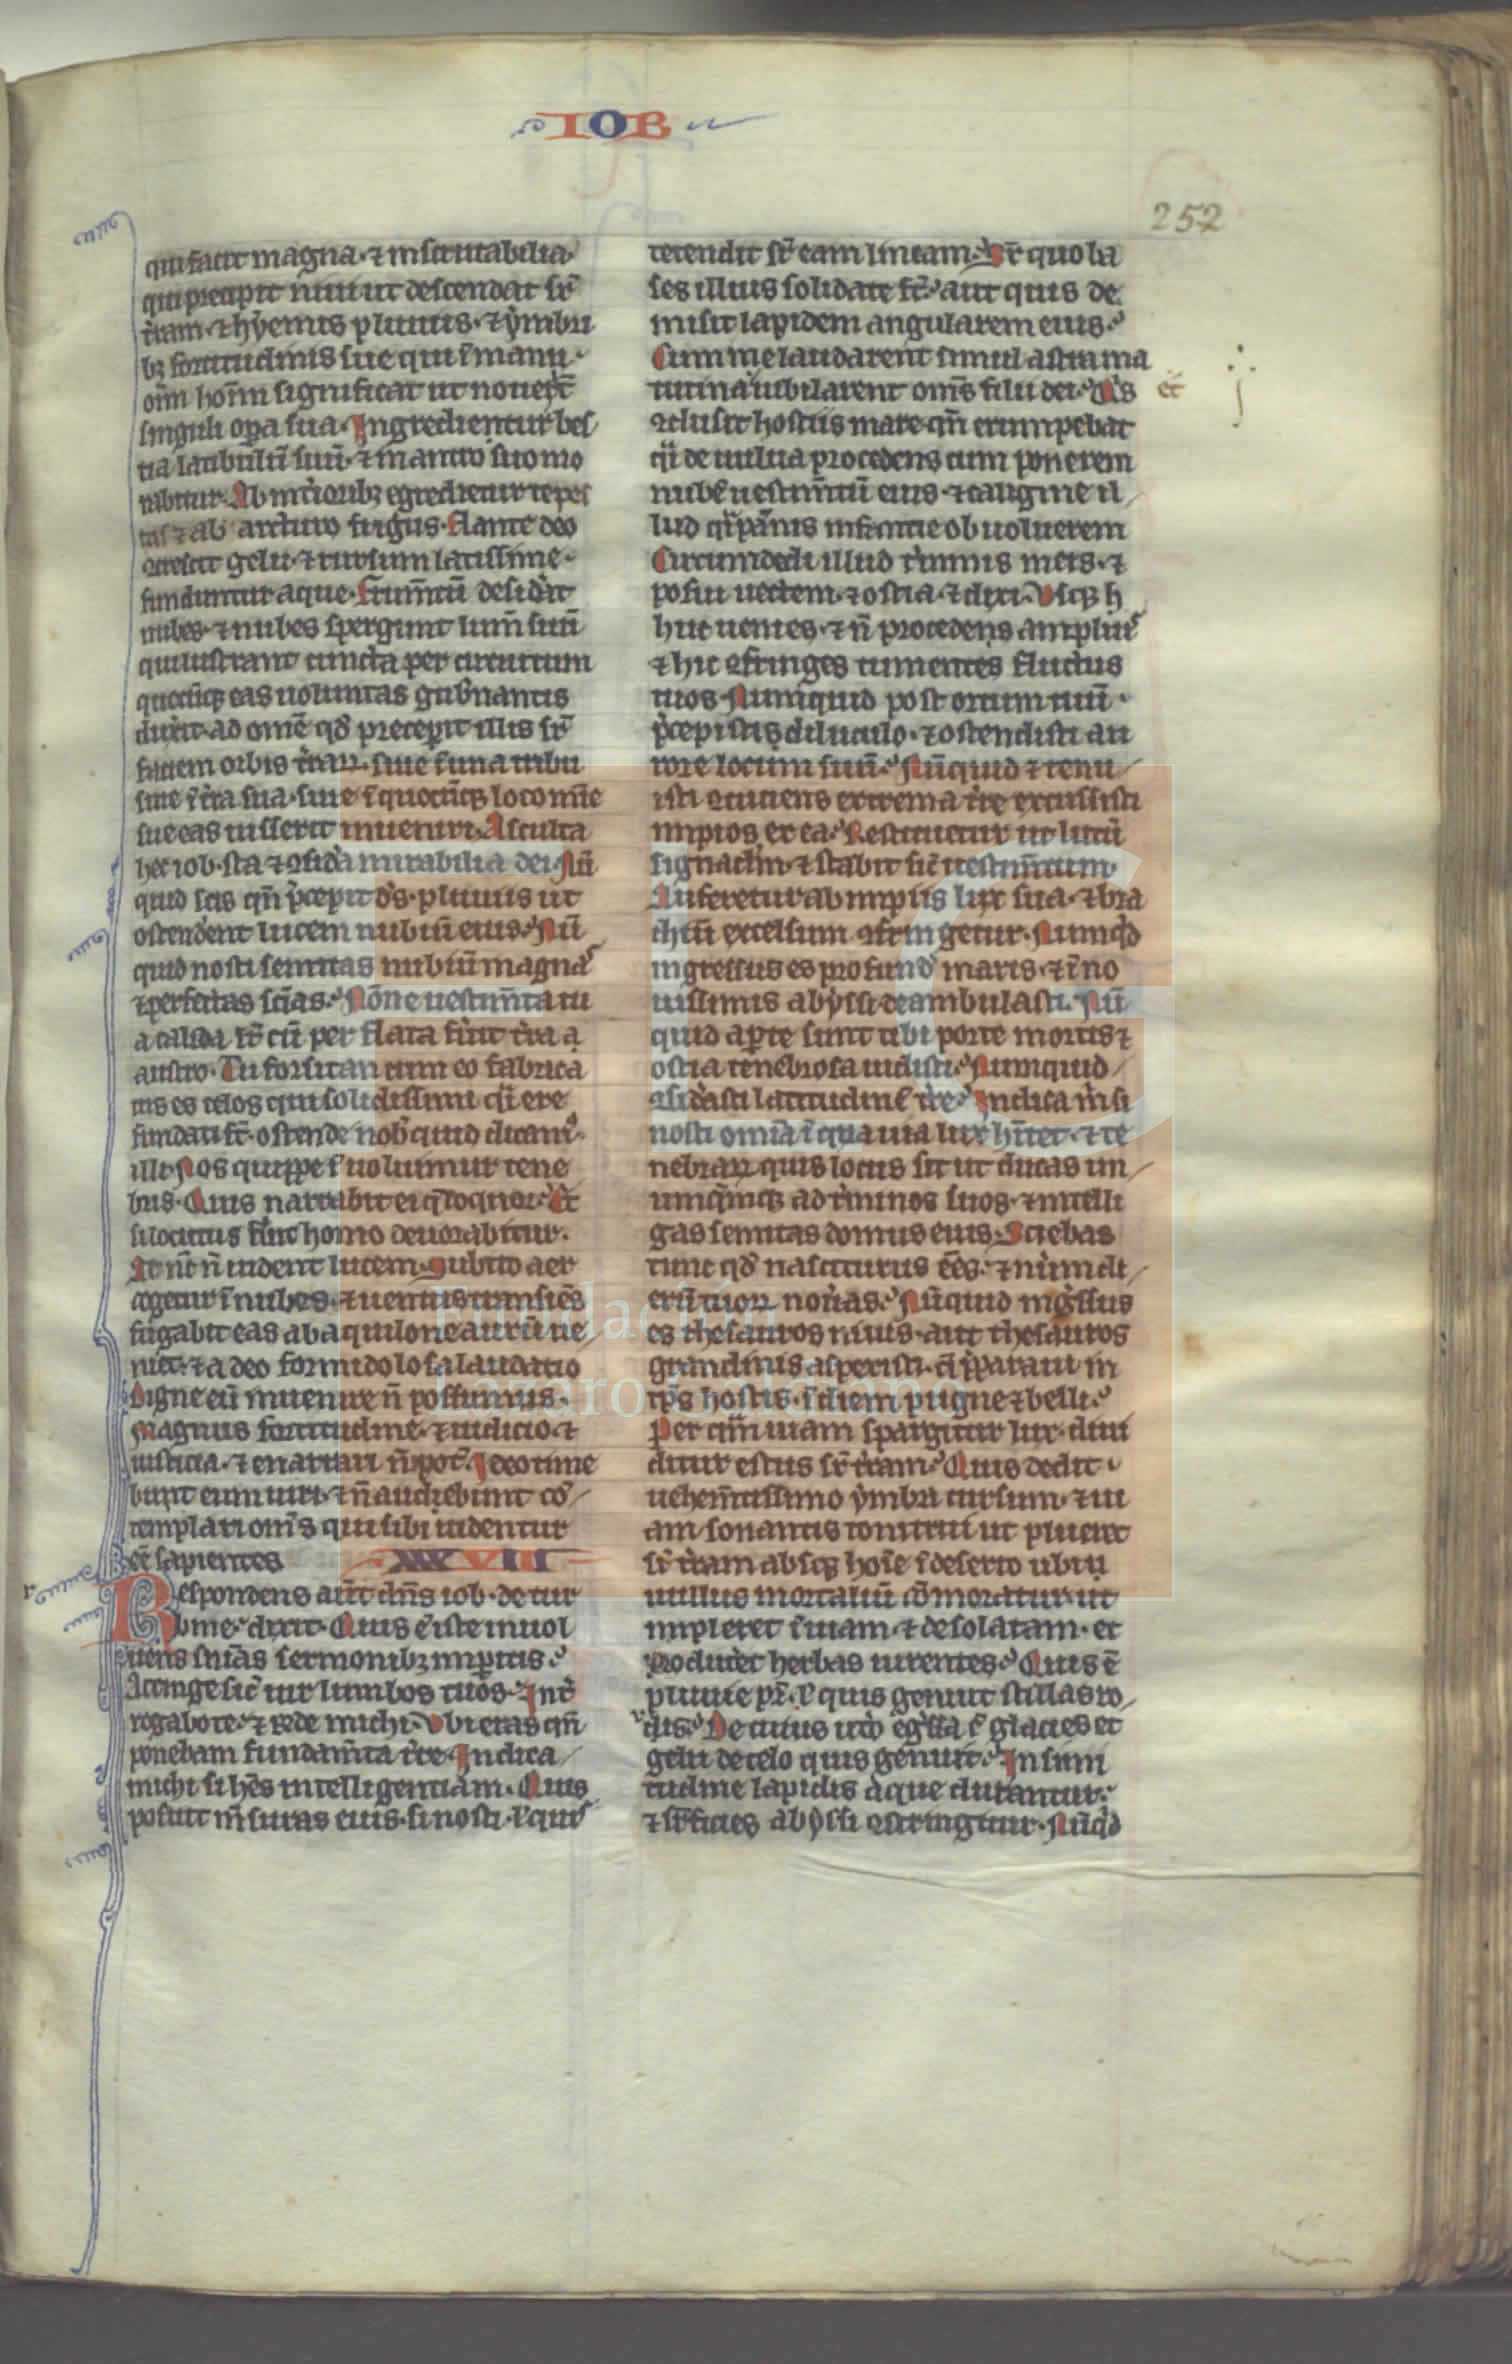 IOB
252
qui facit magna· ⁊ inscrutabilia·
qui precipit niui ut descendat sr̄
t̉ram· ⁊ hyemis pluuiis· ⁊ ymbri
bꝫ fortitudinis sue qui ī manu·
oīm hoīm significat ut nouerīt
singuli oꝑa sua· Ingredientur bes
tia latibulū suū· ⁊ in antro suo mo
rabitur· Ab int̉ioribꝫ egredietur tēpes
tas ⁊ ab arcturo frigus· Flante deo
ꝯcrescit gelu· ⁊ rursum latissime·
funduntur aque· Frum̄tū desid̉at
nubes· ⁊ nubes spergunt lum̄ suū
qui lustrant cuncta per circuitum
quocūqꝫ eas uoluntas gub̉nantis
dux̉it· ad om̄e qd̓ preceperit illis sr̄
faciem orbis t̉raꝝ· siue ī una tribu
siue ī t̉ra sua· siue ī quocūqꝫ loco mīe
sue eas iusserit inueniri· Asculta
hec iob· sta ⁊ ꝯsid̉a mirabilia dei· Nū
quid scis qn̄ p̉cepit d̄s· pluuiis ut
ostend̉ent lucem nubiū eius· Nū
quid nosti semitas nubiū magnas
⁊ perfectas sciās· Nōne uestim̄ta tu
a calida sr̄ cū per flata fūit t̉ra a
austro· Tu forsitan cum eo fabrica
tus es celos qui solidissimi q̄i ere
fundati sr̄· ostende nob̓ quid dicam̓
illi· Nos quippe ī uoluimur tene
bris· Quis narrabit ei q̄ loquor· Et
si locutus fūit homo deuorabitur·
At nc̄ n̄ uident lucem· Subito aer
cogetur ī nubes· ⁊ uentus transiēs
fugabit eas ab aquilone aurū ue
niet· ⁊ a deo formidolosa laudatio
Digne eū inuenire n̄ possumus·
Magnus fortitudine· ⁊ iudicio· ⁊
iusticia· ⁊ enarrari n̄ pot̄· Ideo time
bunt eum uiri· ⁊ n̄ audebunt cō
templari om̄s qui sibi uidentur
eē sapientes XXXVIII
Respondens aut̄ dn̄s iob· de tur
bine· dixit· Quis ē iste inuol
uens snīas sermonibꝫ imꝑitis·
Accinge sic̄ uir lumbos tuos· Int̉
rogabo te· ⁊ r̄nde michi· Vbi eras qn̄
ponebam fundam̄ta t̉re· Indica
michi si hēs intelligentiam· Quis
posuit m̄suras eius· si nosti· ł quis
tetendit sr̄ eam lineam· Sr̄ quo ba
ses illius solidate st̄· aut quis de
misit lapidem angularem eius·
Cum me laudarent simul astra ma
tutina iubilarent om̄s filii dei· Q̉s
ꝯclusit hostiis mare· qn̄ erumpebat
q̄i de uulua procedens cum ponerem
nubē uestim̄tū eius· ⁊ caligine il
lud q̄i pānis infantie obuoluerem
Circumdedi illud t̉minis meis· ⁊
posui uectem· ⁊ ostia· ⁊ dixi· Vsqꝫ h
huc uenies· ⁊ n̄ procedens amplius
⁊ hic ꝯfringes tumentes fluctus
tuos· Numquid post ortum tuū·
p̉cepistis diluculo· ⁊ ostendisti au
rore locum suū· Nūquid ⁊ tenu
isti ꝯcutiens extrema t̉re excussisti
impios ex ea· Restituetur ut lutū
signaclm̄· ⁊ stabit sic̄ uestim̄tum·
Auferetur ab impiis lux sua· ⁊ bra
chiū excelsum ꝯfringetur· Numq̉d
ingressus es profund̓ maris· ⁊ ī no
uissimis abyssi deambulasti· Nū
quid aꝑte sunt tibi porte mortis ⁊
ostia tenebrosa uidisti· Numquid
ꝯsid̉asti latitudinē t̉re· Indica m̉ si
nosti omīa ī qua uia lux hītet· ⁊ te
nebraꝝ quis locus sit ut ducas un
umq̄mqꝫ ad t̉minos suos· ⁊ intelli
gas semitas domus eius· Sciebas
tunc qd̓ nasciturus eēs· ⁊ num̉di
erū tuoꝝ noủas· Nūquid ing̉ssus
es thesauros niuis· aut thesauros
grandinis aspexisti· q̄ p̉paraui in
tp̄s hostis· ī diem pugne ⁊ belli·
Per qm̄ uiam spargitur lux· diui
ditur estus sr̄ t̉ram· Quis dedit
uehem̄tissimo ymbri cursum· ⁊ ui
am sonantis tonitrui ut plueret
sr̄ t̉ram absqꝫ hoīe ī deserto ubi n
nullus mortaliū cōmoratur· ut
impleret ī uiam· ⁊ desolatam· et
producet̉ herbas uirentes· Quis ē
pluuie pr̄· ł quis genuit stillas ro
ris· De cuius ut̉o eg̉ssa ē glacies et
gelu de celo quis genuit· In simi
tudine lapidis aque durantur·
⁊ sr̄ficies abyssi ꝯstringitur· Nūq̉d
Fundación
Lázaro Galdiano